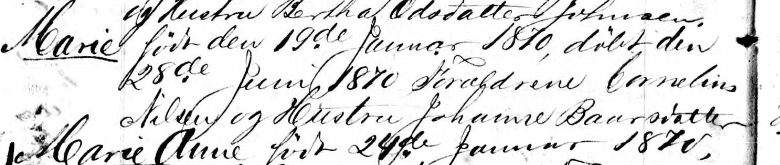 og Hustru Bertha Odsdatter Johnsen.
Marie født den 19de Januar 1870, døbt den
28de Juni 1870 Forældrene Cornelius
Nilsen og Hustru Johanne Baarsdatter
Marie Anne født 24de Januar 1870,